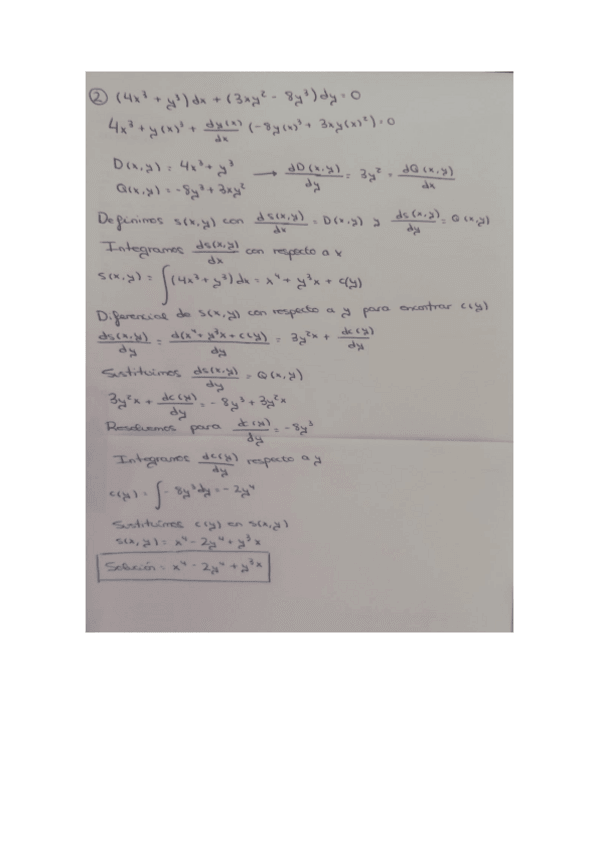 ② (4x³ + y³)dx + (3xy² - 8y³)dy = 0
4x³ + y(x)³ + dy(x)/dx (-8y(x)³ + 3xy(x)²) = 0
D(x,y) = 4x³ + y³
Q(x,y) = -8y³ + 3xy²
→ dD(x,y)/dy = 3y² = dQ(x,y)/dx
Definimos s(x,y) con ds(x,y)/dx = D(x,y) y ds(x,y)/dy = Q(x,y)
Integramos ds(x,y)/dx con respecto a x
s(x,y) = ∫(4x³ + y³)dx = x⁴ + y³x + c(y)
Diferencial de s(x,y) con respecto a y para encontrar c(y)
ds(x,y)/dy = d(x⁴ + y³x + c(y))/dy = 3y²x + dc(y)/dy
Sustituimos ds(x,y)/dy = Q(x,y)
3y²x + dc(y)/dy = -8y³ + 3y²x
Resolvemos para dc(y)/dy = -8y³
Integramos dc(y)/dy respecto a y
c(y) = ∫-8y³dy = -2y⁴
Sustituimos c(y) en s(x,y)
s(x,y) = x⁴ - 2y⁴ + y³x
Solución = x⁴ - 2y⁴ + y³x